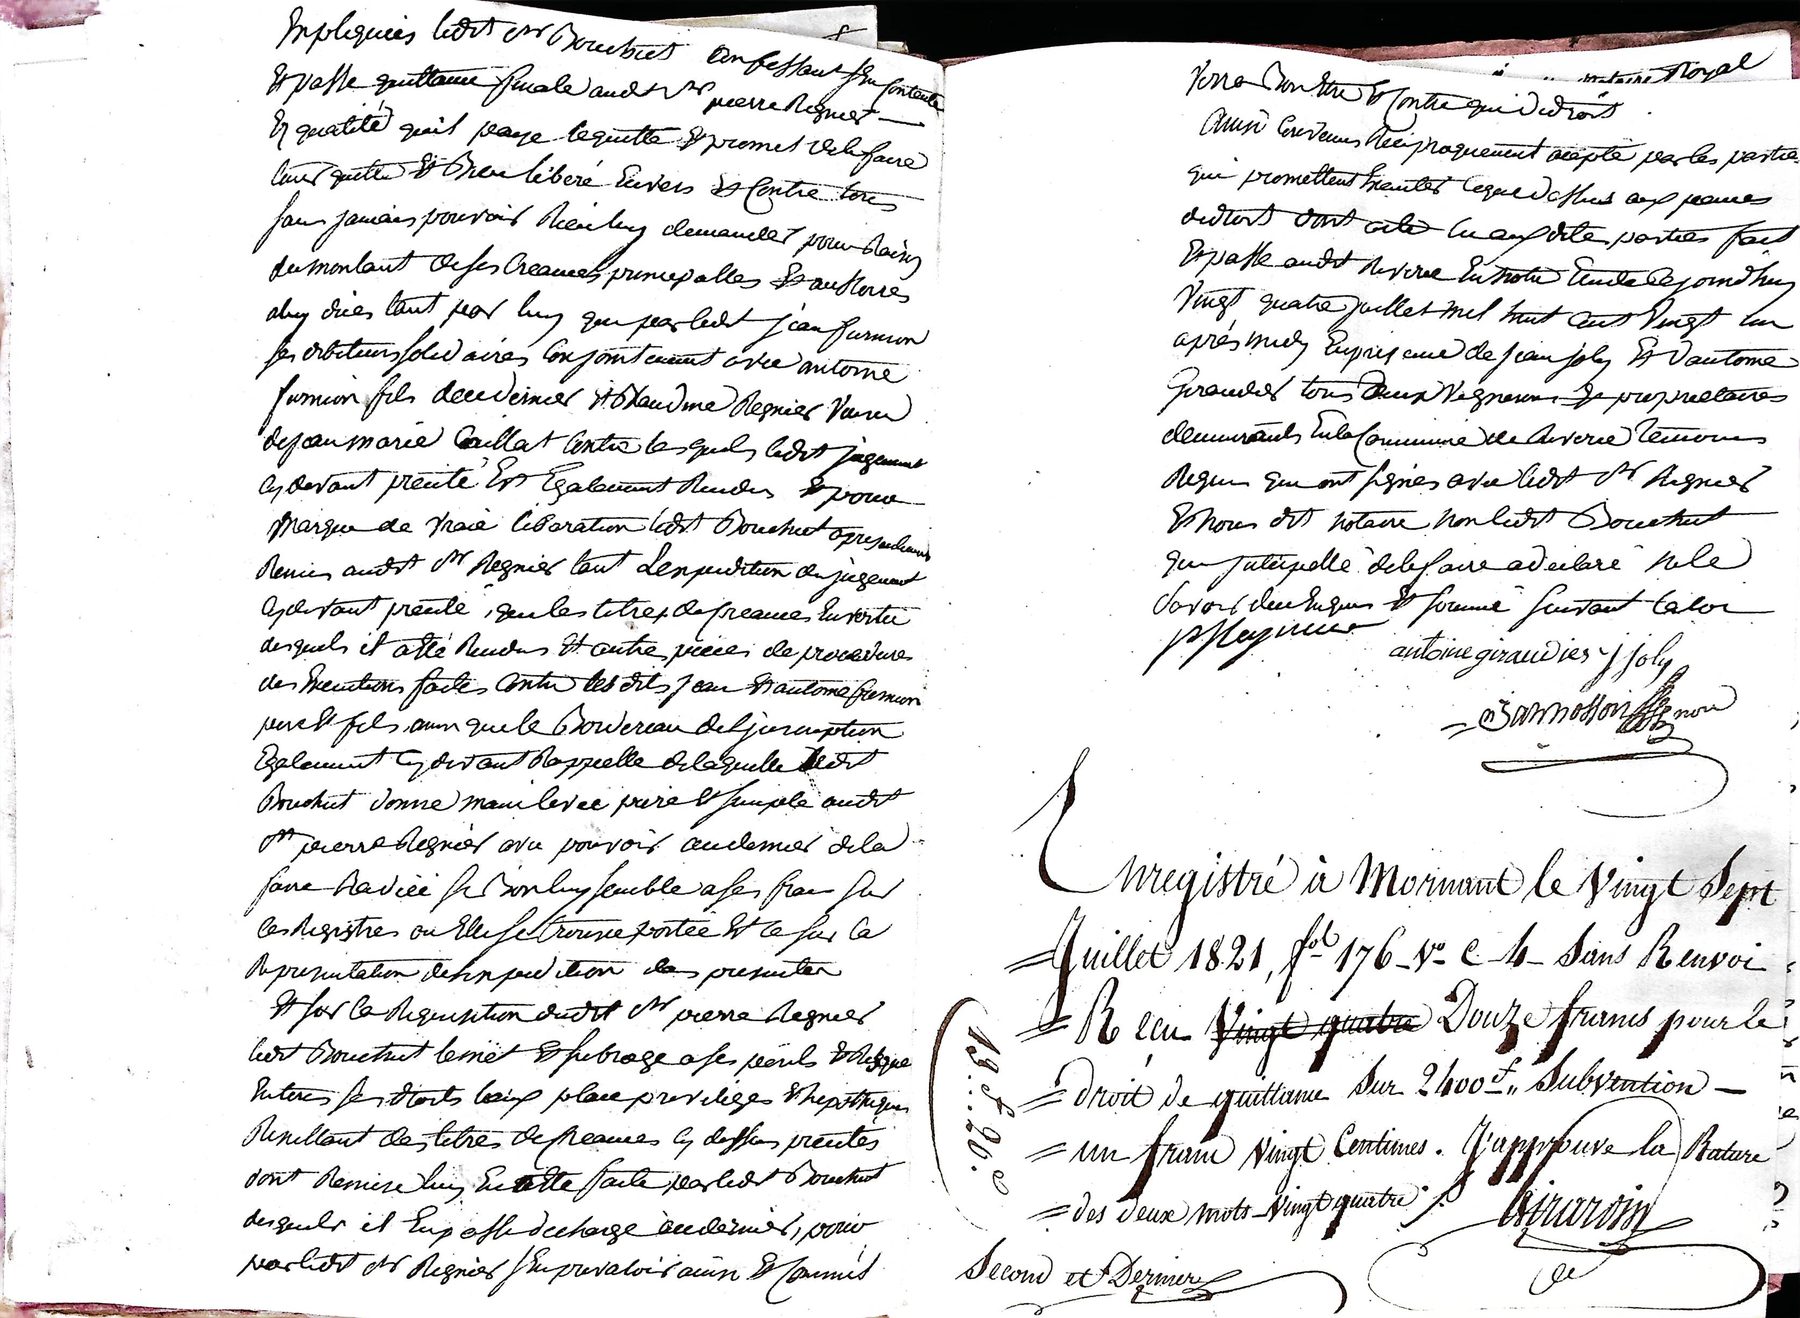 Impliquées ledit sr Bouchut confessant s'en contente
Et passe quittance finale audit sr pierre Regnier
En qualité quil paye lequitte Et promet de le faire
tenir quitte Et Bien libéré Envers Et Contre tous
sans jamais pouvoir Rien luy demander pour Raison
du montant de ses Creances principalles Et accessoires
a luy dues tant par luy que par ledit jean furnion
ses debiteurs solidaires Conjointement avec antoine
furnion fils de ce dernier Et Claudine Regnier Veuve
de jean marie Caillat Contre lesquels ledit jugement
cy devant précité Est Egalement Rendu Et pour
Marque de Vraie libération ledit Bouchut a presentement
Remis audit sr Regnier tant l'expedition du jugement
cy devant précité, que les titres de Creances En vertu
desquels il a été Rendus Et autre pieces de procedures
des Executions faites Contre les dits jean Et antoine furnion
pere Et fils, ainsi que le Bordereau de l'jnscription
Egalement cy devant Rappellé de laquelle ledit
Bouchut donne main levée pure Et simple audit
sr pierre Regnier avec pouvoir au dernier de la
faire Radiée si Bon luy semble a ses frais sur
les Registres ou Elle se trouve portée Et ce sur la
Representation de l'expedition des presentes
Et sur la Requisition dudit sr pierre Regnier
ledit Bouchut le met Et subroge a ses périls Et Risque
En tous ses droits lieux place privilèges Et hypotheques
Resultant des titres de Creances cy dessus précités
dont Remise luy En a été faite par ledit Bouchut
desquels il En passe decharge à ce dernier, pour
par ledit sr Regnier s'En prevaloir ainsi Et Comme
Verra Bon Etre Et Contre qui de droit.
Ainsi Convenu Reciproquement accepté par les parties
qui promettent Executer ce que dessus aux peines
de droit dont acte lu aux dites parties fait
Et passé audit Riverie En notre Etude ce jourd'huy
Vingt quatre juillet mil huit cent Vingt un
après midy En presence de jean joly Et d'antoine
Giraudier tous deux Vignerons Et proprietaires
demeurants En la Commune de Riverie temoins
Requis qui ont signés avec ledit sr Regnier
Et nous dit notaire non ledit Bouchut
qui jnterpellé de le faire a déclaré ne le
savoir de ce Enquis Et sommé suivant la loi
p Regnier
antoine giraudier j joly
Enregistré à Mornant le Vingt Sept
Juillet 1821, fol 176 vo C 4 Sans Renvoi
Recu Vingt quatre Douze francs pour le
droit de quittance Sur 2400 f,, Subvention
un franc Vingt Centimes. J'approuve la Rature
des deux mots Vingt quatre
13 f 20 c
Second et Dernier
notaire Royal